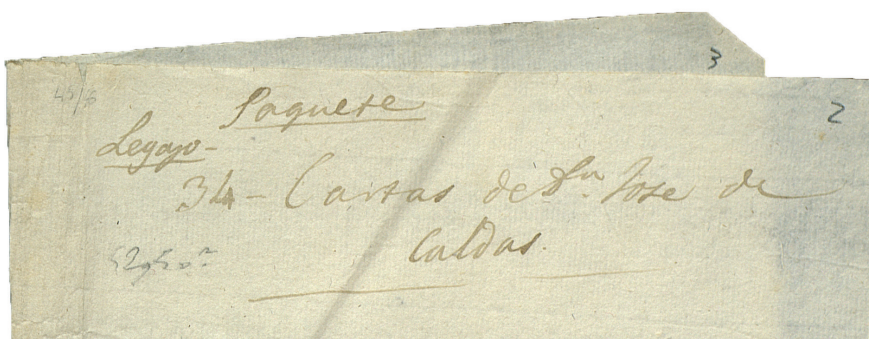 3
2
Paquete
Legajo-
34 - Cartas de Dn. Jose de
Caldas.